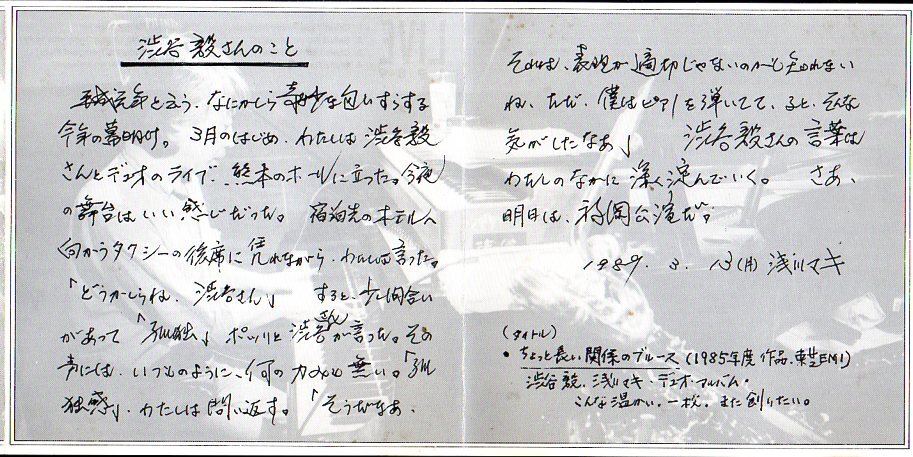 渋谷毅さんのこと
平成元年と云う、なにかしら奇妙な匂いすらする
今年の幕明け。3月のはじめ、わたしは渋谷毅
さんとデュオのライブで熊本のホールに立った。今夜
の舞台はいい感じだった。宿泊先のホテルへ
向かうタクシーの後席に凭れながら、わたしは言った。
「どうかしらね、渋谷さん」 すると、少し間合い
があって「孤独」ポツリと渋谷さんが言った。その
声には、いつものように、何の力みも無い。「孤
独感」、わたしは問い返す。「そうだなあ、
それは、表現が適切じゃないのかも知れない
ね、ただ、僕はピアノを弾いてて、ふと、そんな
気がしたなあ」 渋谷毅さんの言葉は
わたしのなかに深く淀んでいく。 さあ、
明日は、福岡公演だ。
1989. 3. 13(月) 浅川マキ
(タイトル)
• ちょっと長い関係のブルース (1985年度作品、東芝EMI)
渋谷毅、浅川マキ・デュオ・アルバム・
こんな温かい、一枚。また創りたい。